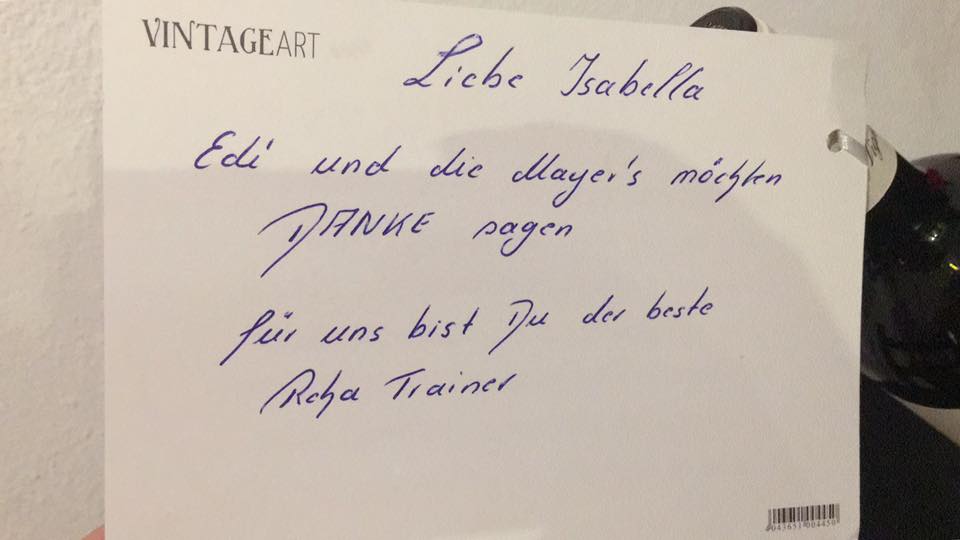 VINTAGEART
Liebe Isabella
Edi und die Mayer's möchten
DANKE sagen
für uns bist Du der beste
Reha Trainer
4043651004450